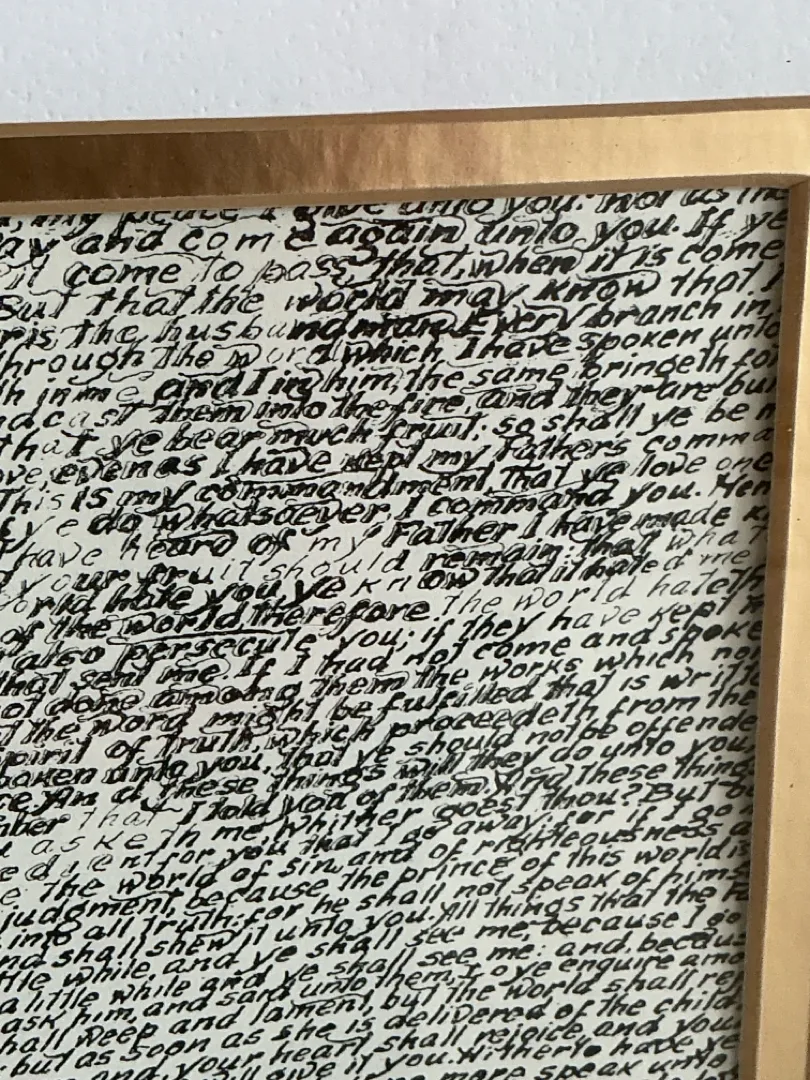 my peace I give unto you: not as the
ay and come again unto you. If ye
it come to pass, that, when it is come
But that the world may know that I
r is the husbandman. Every branch in
through the word which I have spoken unto
th in me and I in him, the same bringeth for
nd cast them into the fire, and they are bu
that ye bear much fruit; so shall ye be m
ove, even as I have kept my Father's comma
This is my commandment, That ye love one
f ye do whatsoever I command you. Hen
have heard of my Father I have made k
your fruit should remain: that what
orld hate you, ye know that it hated me
of the world, therefore the world hateth
also persecute you; if they have kept m
that sent me. If I had not come and spoke
ot done among them the works which no
the word might be fulfilled that is writte
pirit of truth, which proceedeth from the
poken unto you, that ye should not be offende
ce. And these things will they do unto you,
mber that I told you of them. And these things
u asketh me, Whither goest thou? But be
edient for you that I go away: for if I go n
e the world of sin, and of righteousness a
judgment, because the prince of this world is
into all truth: for he shall not speak of hims
nd shall shew it unto you. All things that the Fa
ttle while, and ye shall see me, because I go
a little while and ye shall see me: and, because
ask him, and said unto them, Do ye enquire amo
hall weep and lament, but the world shall rej
but as soon as she is delivered of the child
and your heart shall rejoice and your
will give it you. Hitherto have ye
no more speak unto